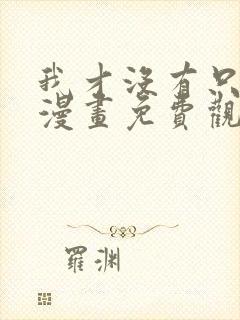 我才沒有只
漫畫免費觀
羅渊